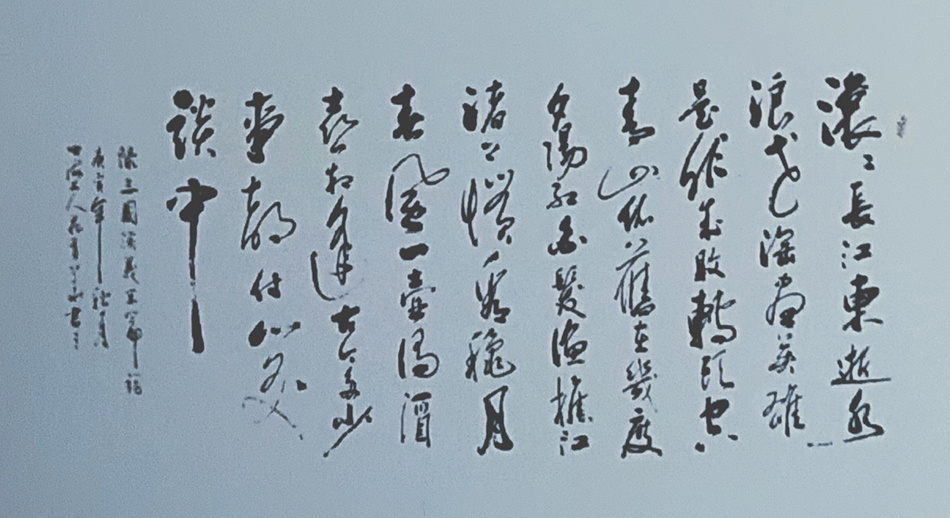 滚〻長江東逝水
浪花淘盡英雄
是非成敗轉頭空
青山依舊在幾度
夕陽紅白髮漁樵江
渚上慣看穐月
春風一壺濁酒
喜相逢古今多少
事都付笑
談中
錄三國演義開篇詞
庚寅年秋月